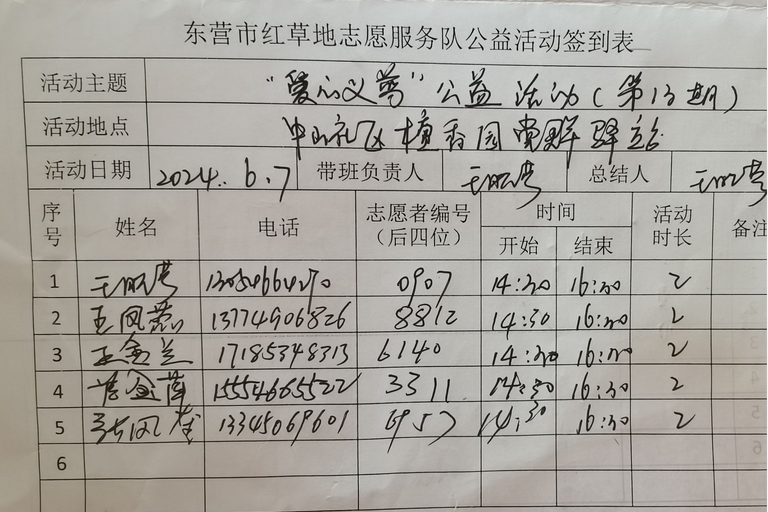 东营市红草地志愿服务队公益活动签到表
活动主题 “爱心义剪”公益活动(第13期)
活动地点 中山社区檀香园党群驿站
活动日期 2024.6.7 带班负责人 总结人
序号 姓名 电话 志愿者编号(后四位) 时间 开始 结束 活动时长 备注
1 0907 14:30 16:30 2
2 王凤 13774906826 8812 14:30 16:30 2
3 王金兰 17185348313 6140 14:30 16:30 2
4 15554665522 3311 14:30 16:30 2
5 13345069601 6957 14:30 16:30 2
6